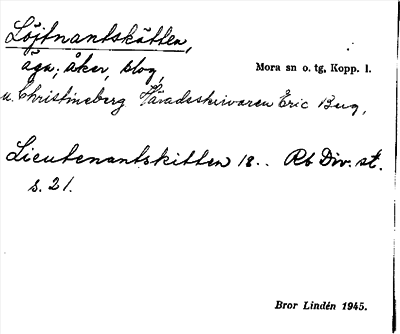 Löjtnantskätten,
äga; åker, slog,
Mora sn o. tg, Kopp. l.
u. Christineberg Häradsskrivaren Eric Berg,
Lieutenantskitten 18.. Rb Div. st.
s. 21.
Bror Lindén 1945.